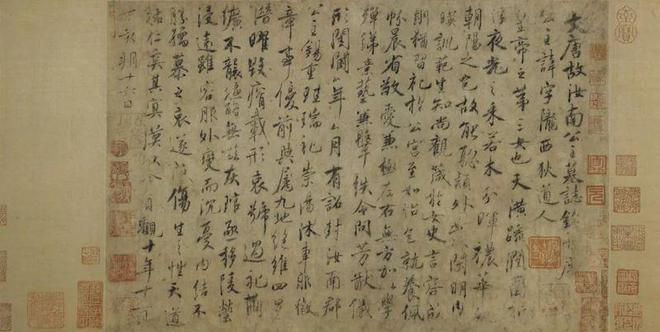 大唐故汝南公主墓誌銘并序
公主諱字隴西狄道人
皇帝之第三女也天潢疏潤圓折
浮夜光之采若木分暉穠華照
朝陽之色故能聰穎外發閑明內
暎訓範生知尚觀箴於女史言容成
則猶習礼於公宮至如怡色就養佩
帉晨省敬愛兼極左右無方加以學
殫綈素藝兼鞶紩令問芳猷儀
形閨閫△年△月有詔封汝南郡
公主錫重珪瑞礼崇湯沐車服徽
章事優前典屬九地絕維四星
潛曜毀瘠載形哀號過礼繭
纊不襲鹽酪無嗞灰琯亟移陵塋
浸遠雖容服外變而沉憂內結不
勝孺慕之哀遂成傷生之性天道
祐仁奚其冥漠以今貞觀十年十一月
丁亥朔十六日